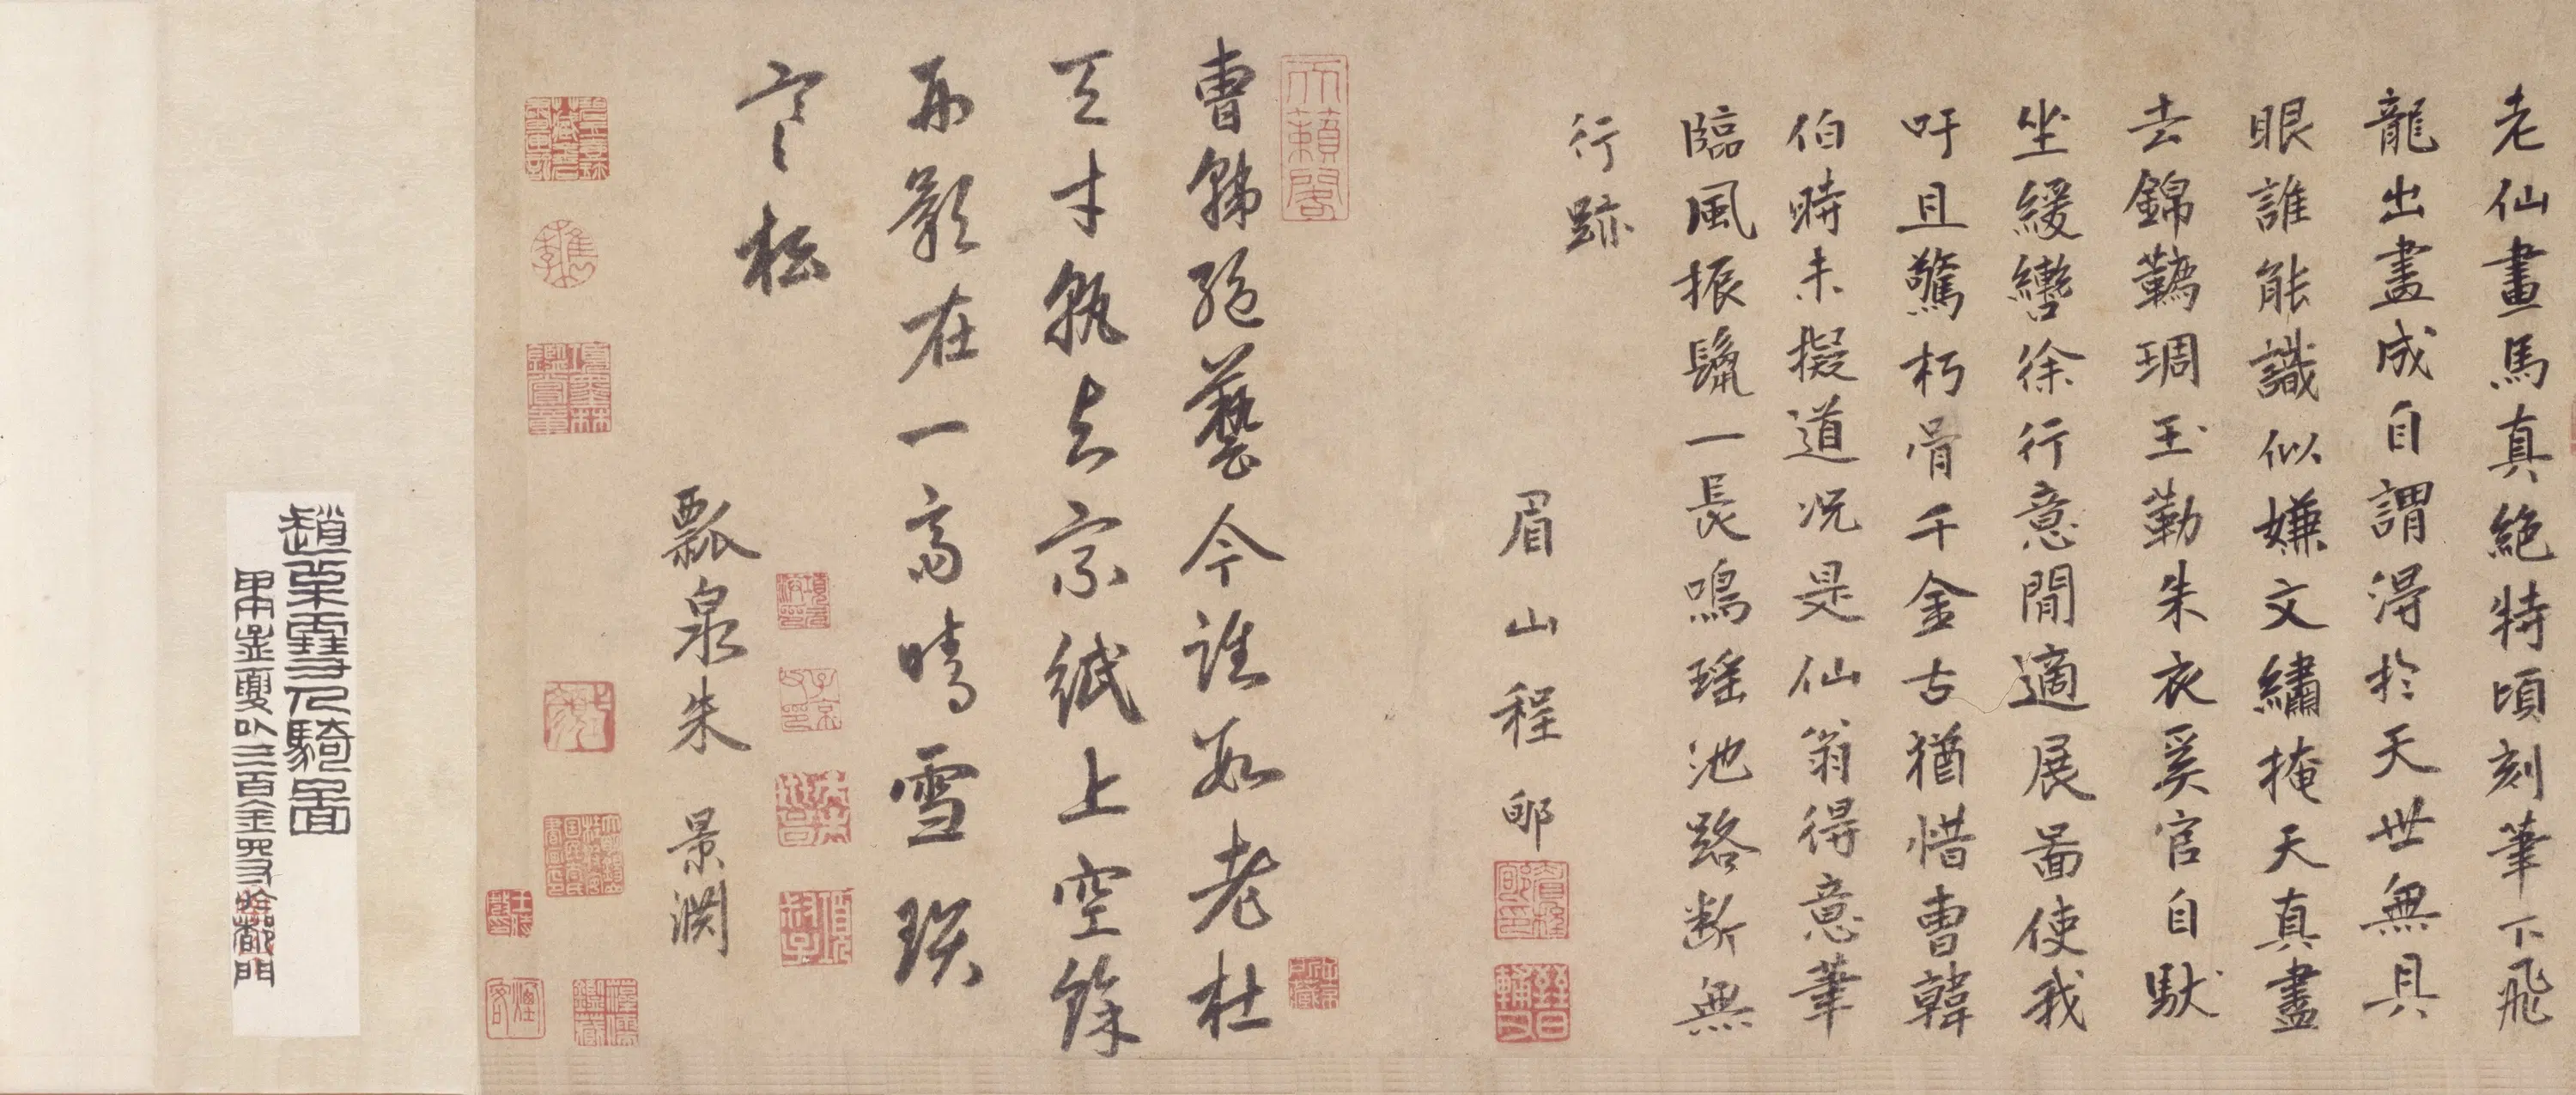 老仙畫馬真絕特頃刻筆下飛
龍出畫成自謂淂於天世無具
眼誰能識似嫌文繡掩天真盡
去錦韉琱玉勒朱衣奚官自馱
坐緩轡徐行意閒適展啚使我
吁且驚朽骨千金古猶惜曹韓
伯時未擬道況是仙翁得意筆
臨風振鬛一長鳴瑤池路断無
行跡
眉山程郇
天籟閣
曹韓絕藝今誰 老杜
才孰與宗紙上空餘
影在一 晴雪映
寒松
瓢泉朱 景渊
項墨林鑑賞章
趙 人騎圖
孟夏以三百金 於都門